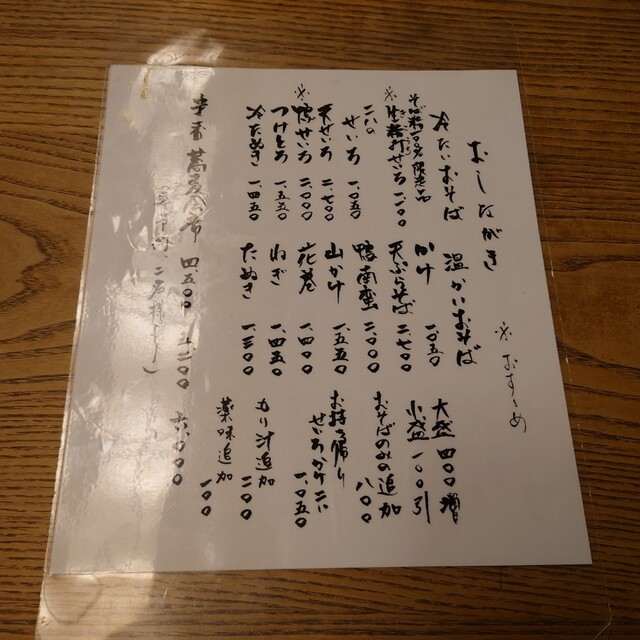 おしながき
※おすゝめ
冷たいおそば
そば粉
限定品
※生粉打せいろ 一、一〇〇
二八
せいろ 一、〇五〇
天せいろ 二、七〇〇
※鴨せいろ 二、〇〇〇
つけとろ 一、五五〇
冷たぬき 一、四五〇
温かいおそば
かけ 一、〇五〇
天ぷらそば 二、七〇〇
鴨南蛮 二、〇〇〇
山かけ 一、五五〇
花巻 一、四〇〇
ねぎ 一、四五〇
たぬき 一、三〇〇
大盛 四〇〇増
小盛 一〇〇引
おそばのみの追加 八〇〇
お持ち帰り
せいろかけ共に 一、〇五〇
もり汁追加 二〇〇
薬味追加 一〇〇
四、五〇〇
六、〇〇〇